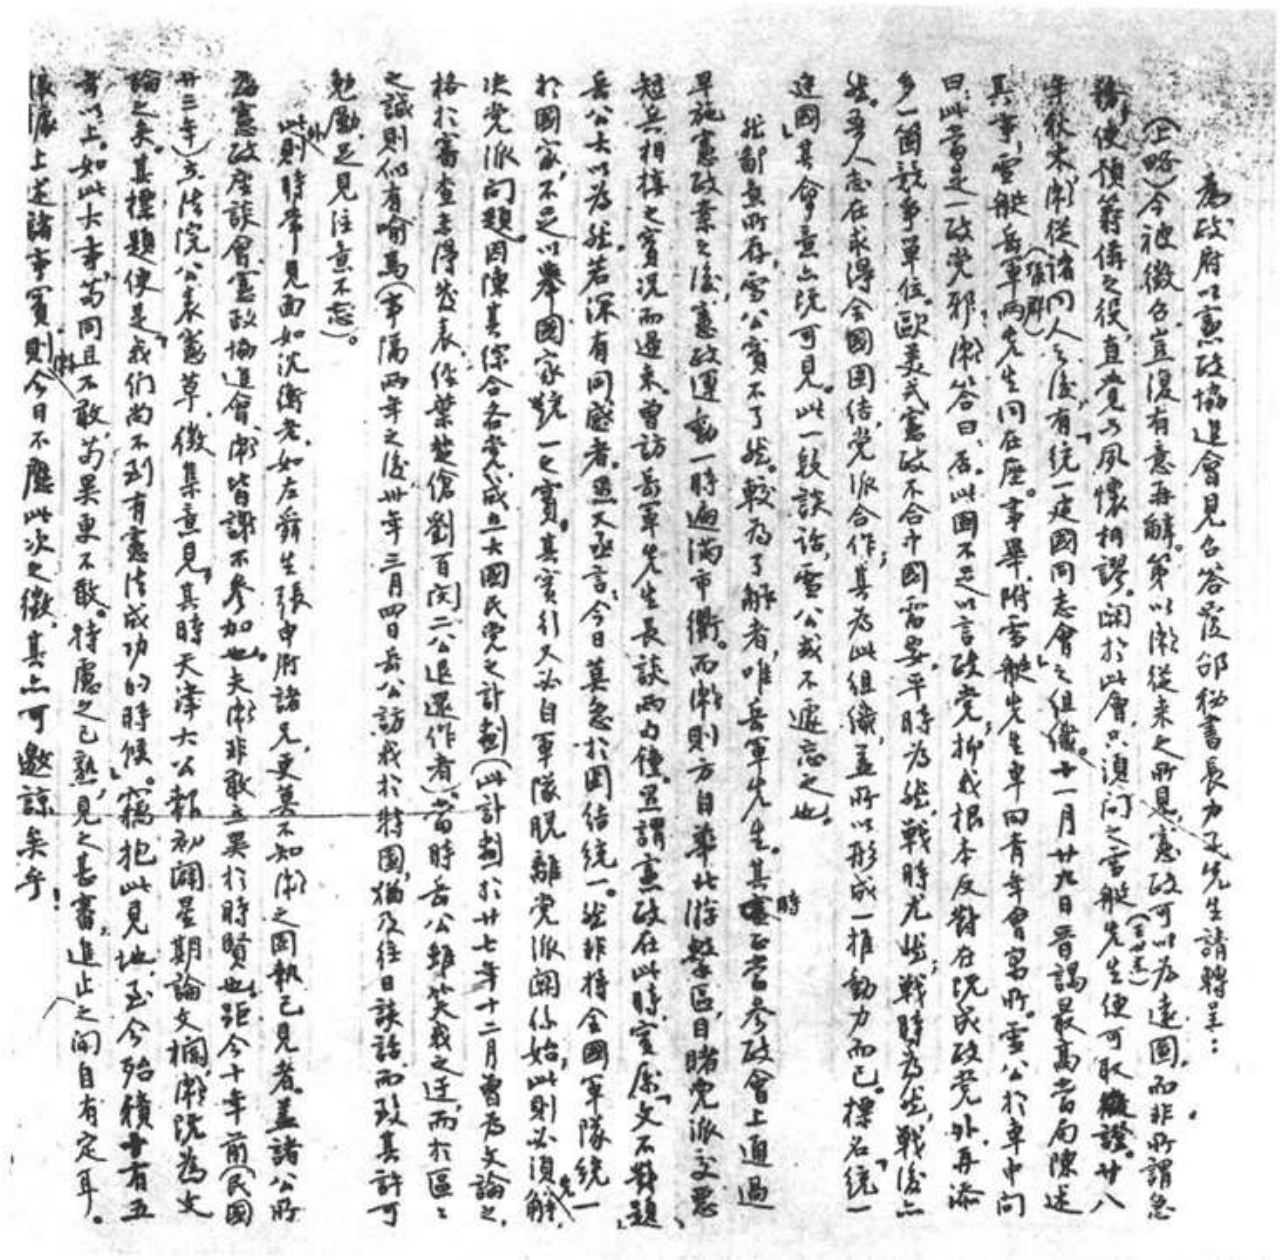 為政府以憲政協進會見召答覆邵秘書長力子先生請轉呈：
（上略）今被徵召，豈復有意再辭。第以漱從來之所見，憲政可以為遠圖，而非所謂急
務，使預籌備之役，直覺乃夙懷相謬。關於此會，只須問之雪艇（王世杰）先生便可取證。廿八
年秋末漱從諸同人之後，有「統一建國同志會」之組織。十一月廿九日晉謁最高當局陳述
其事，雪艇岳軍（張群）兩先生同在座。事畢，附雪艇先生車回青年會寓所。雪公於車中問
曰：此當是一政党邪，漱答曰：否。此國不足以言政党，抑我根本反對在現成政党外，再添
多一個競爭單位。歐美式憲政不合中國需要，平時為然，戰時尤然；戰時為然，戰後亦
然。吾人志在求得全國團結，党派合作；其為此組織，蓋所以形成一推動力而已。標名「統一
建國」其命意亦既可見。此一段談話，雪公或不遽忘之也。
然鄙意所存，雪公實不了然。較為了解者，唯岳軍先生。其時正當參政會上通過
早施憲政案之後，憲政運動一時遍滿市衢。而漱則方自華北游擊區，目睹党派交惡
短兵相接之實況而還來。曾訪岳軍先生長談兩力僅。且謂憲政在此時，實屬「文不對題」，
岳公大以為然。若深有同感者。且又亟言：今日莫急於團結統一。然非將全國軍隊統一
於國家，不足以舉國家統一之實。其實行又必自軍隊脫離党派關係始，此則必須先解
決党派問題。因陳其綜合各党，成立大國民党之計劃（此計劃於廿七年十二月曾為文論之，
格於審查未得發表，係葉楚傖劉百閔二公退還作者）當時岳公雖笑我之迂，而於區區
之誠則似有喻焉（事隔兩年之後卅年三月四日岳公訪我於特園，猶及往日談話，而致其許可
勉勵，足見注意不忘）。
此外則時常見面如沈衡老，如左舜生張申府諸兄，更莫不知漱之固執己見者。蓋諸公所
為憲政座談會，憲政協進會，漱皆謝不參加也。夫漱非敢立異於時賢也。距今十年前（民國
廿三年）立法院公表憲草，徵集意見，其時天津大公報初闢星期論文欄，漱既為文
論之矣。其標題便是「我們尚不到有憲法成功的時候。」竊抱此見地，至今殆積十有五
年以上。如此大事，苟同且不敢，苟異更不敢。特慮之已熟，見之甚審，進止之間自有定耳。
根據上述諸事實，則漱今日不應此次之徵，其亦可邀諒矣乎！